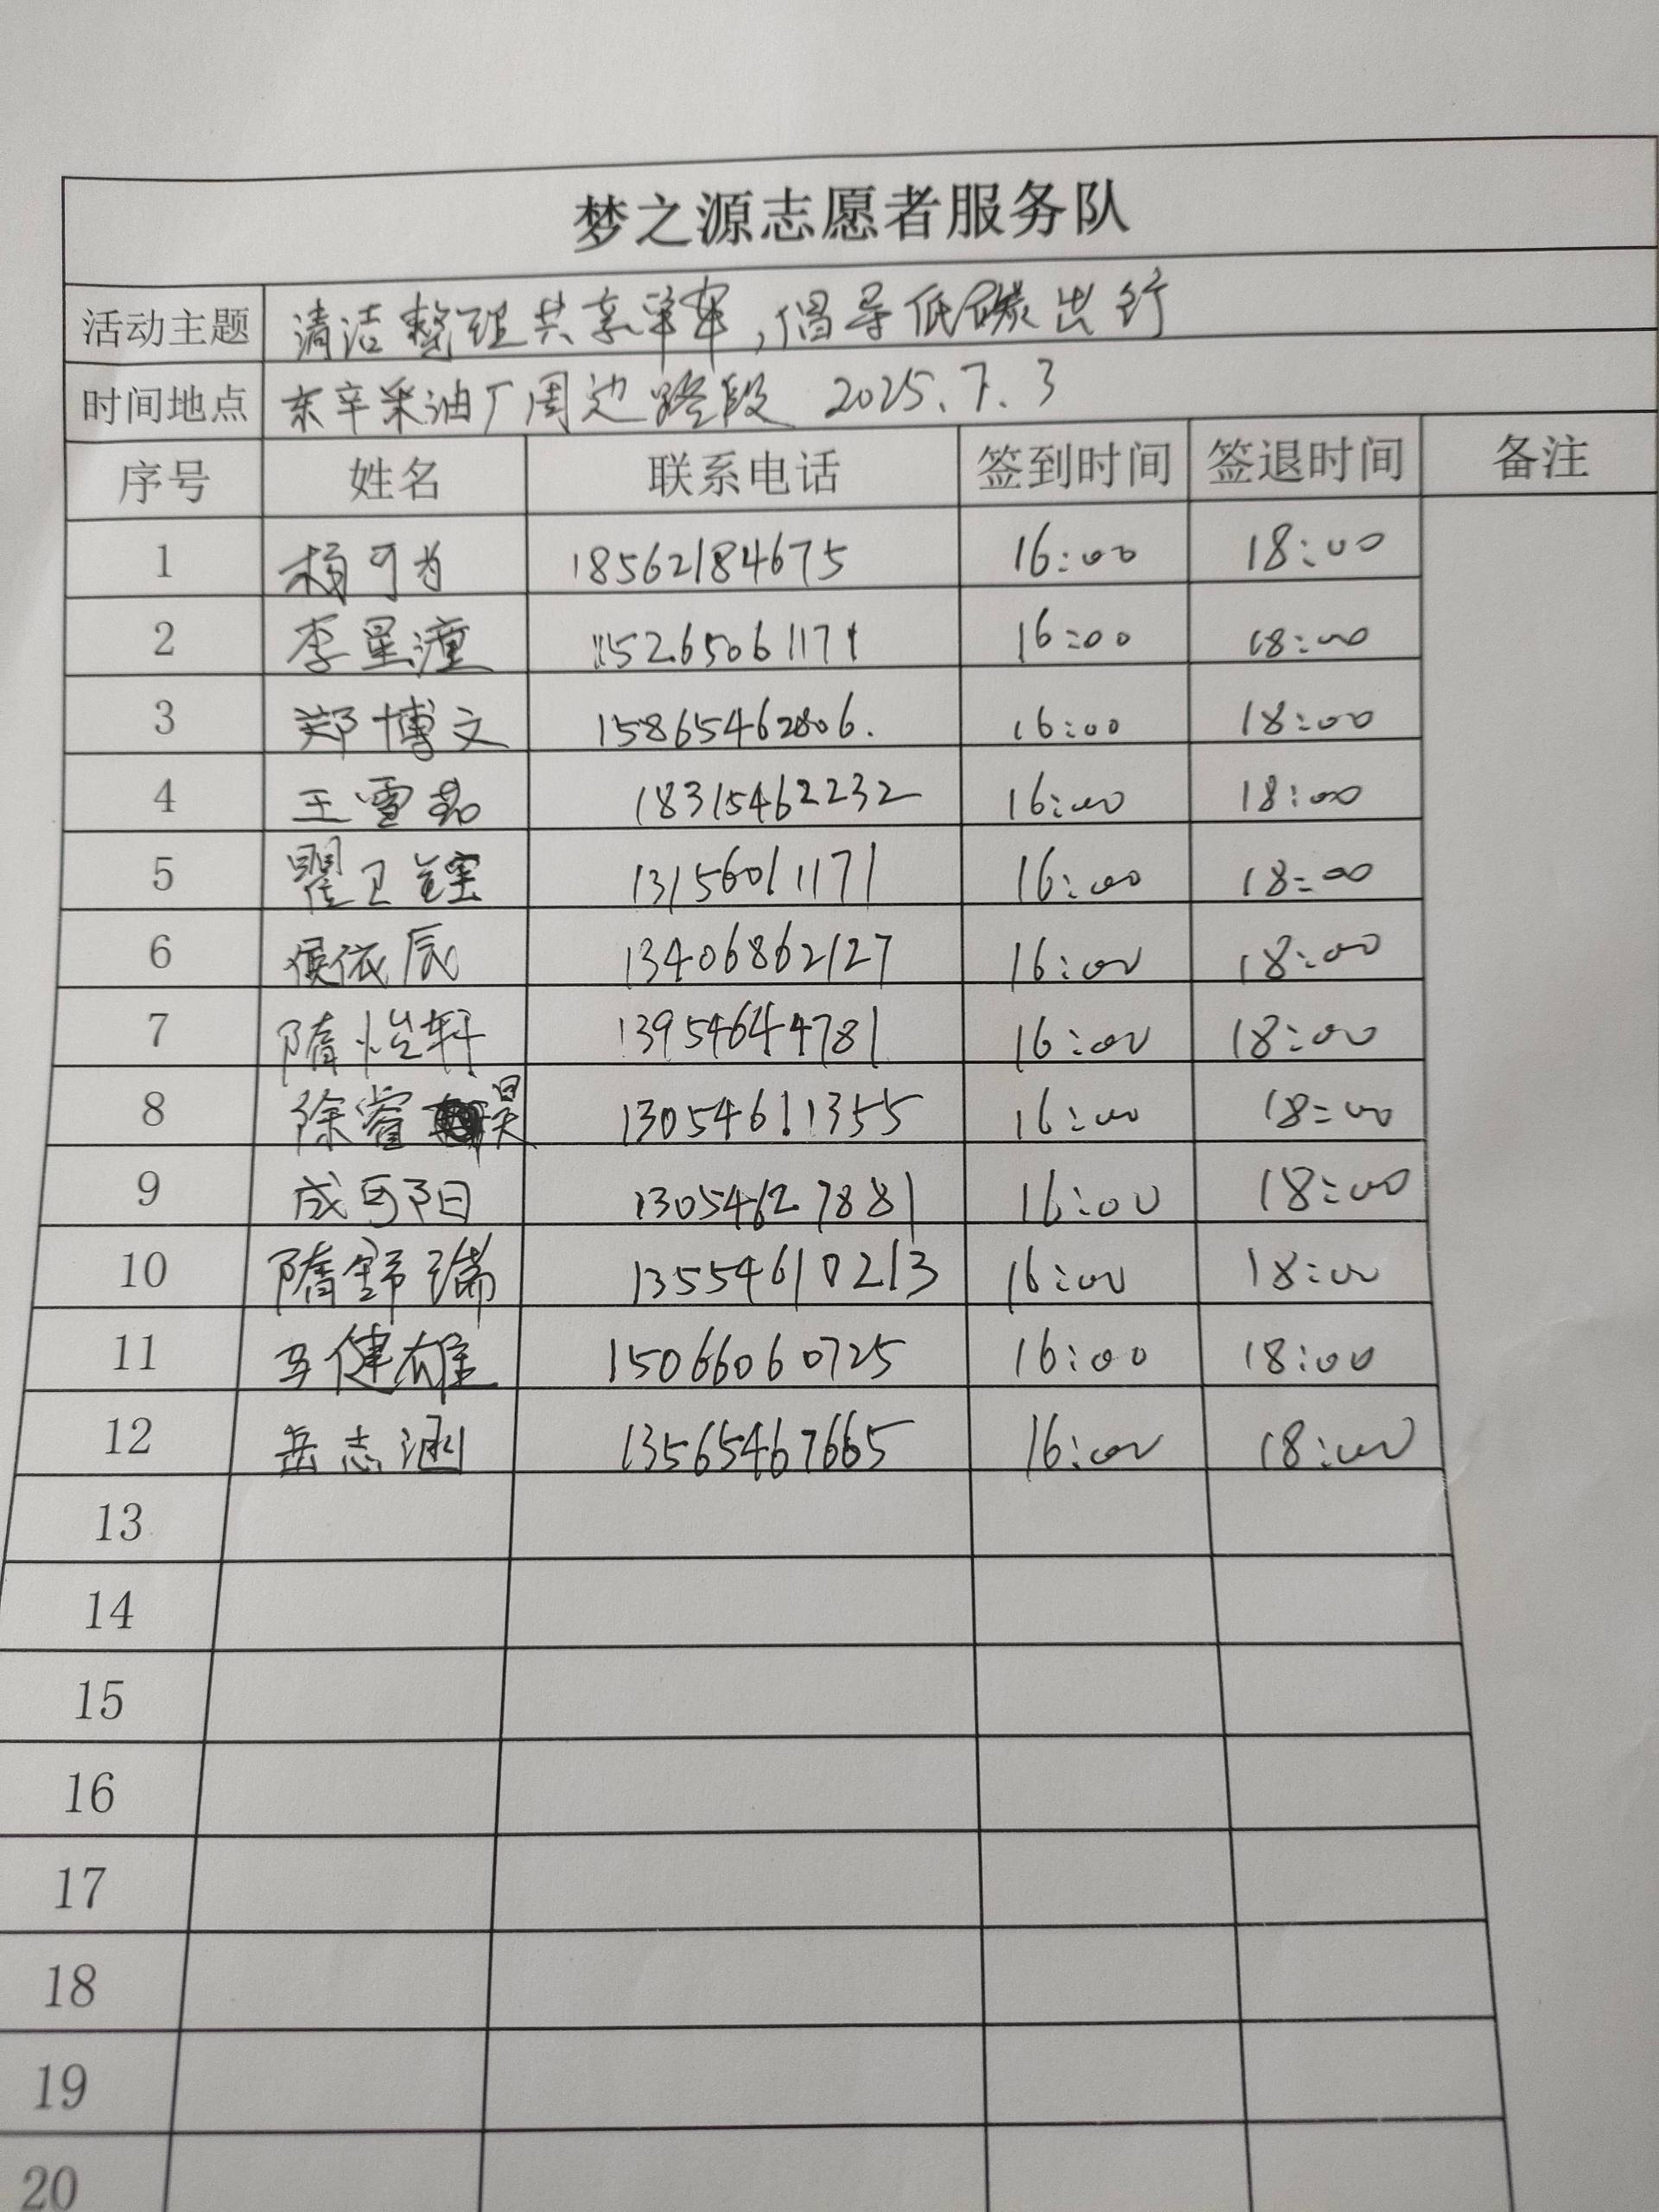 梦之源志愿者服务队
活动主题 清洁整理共享单车,倡导低碳出行
时间地点 东辛采油厂周边路段 2025.7.3
序号 姓名 联系电话 签到时间 签退时间 备注
1 杨可为 18562184675 16:00 18:00
2 李星潼 15265061171 16:00 18:00
3 郑博文 15865462806. 16:00 18:00
4 王雪茹 18315462232 16:00 18:00
5 瞿卫 13156011171 16:00 18:00
6 侯依辰 13406862127 16:00 18:00
7 隋怡轩 13954644781 16:00 18:00
8 徐睿昊 13054611355 16:00 18:00
9 成阳 13054627881 16:00 18:00
10 隋舒瑞 13554610213 16:00 18:00
11 马健雄 15066060725 16:00 18:00
12 岳志涵 13565467665 16:00 18:00
13
14
15
16
17
18
19
20